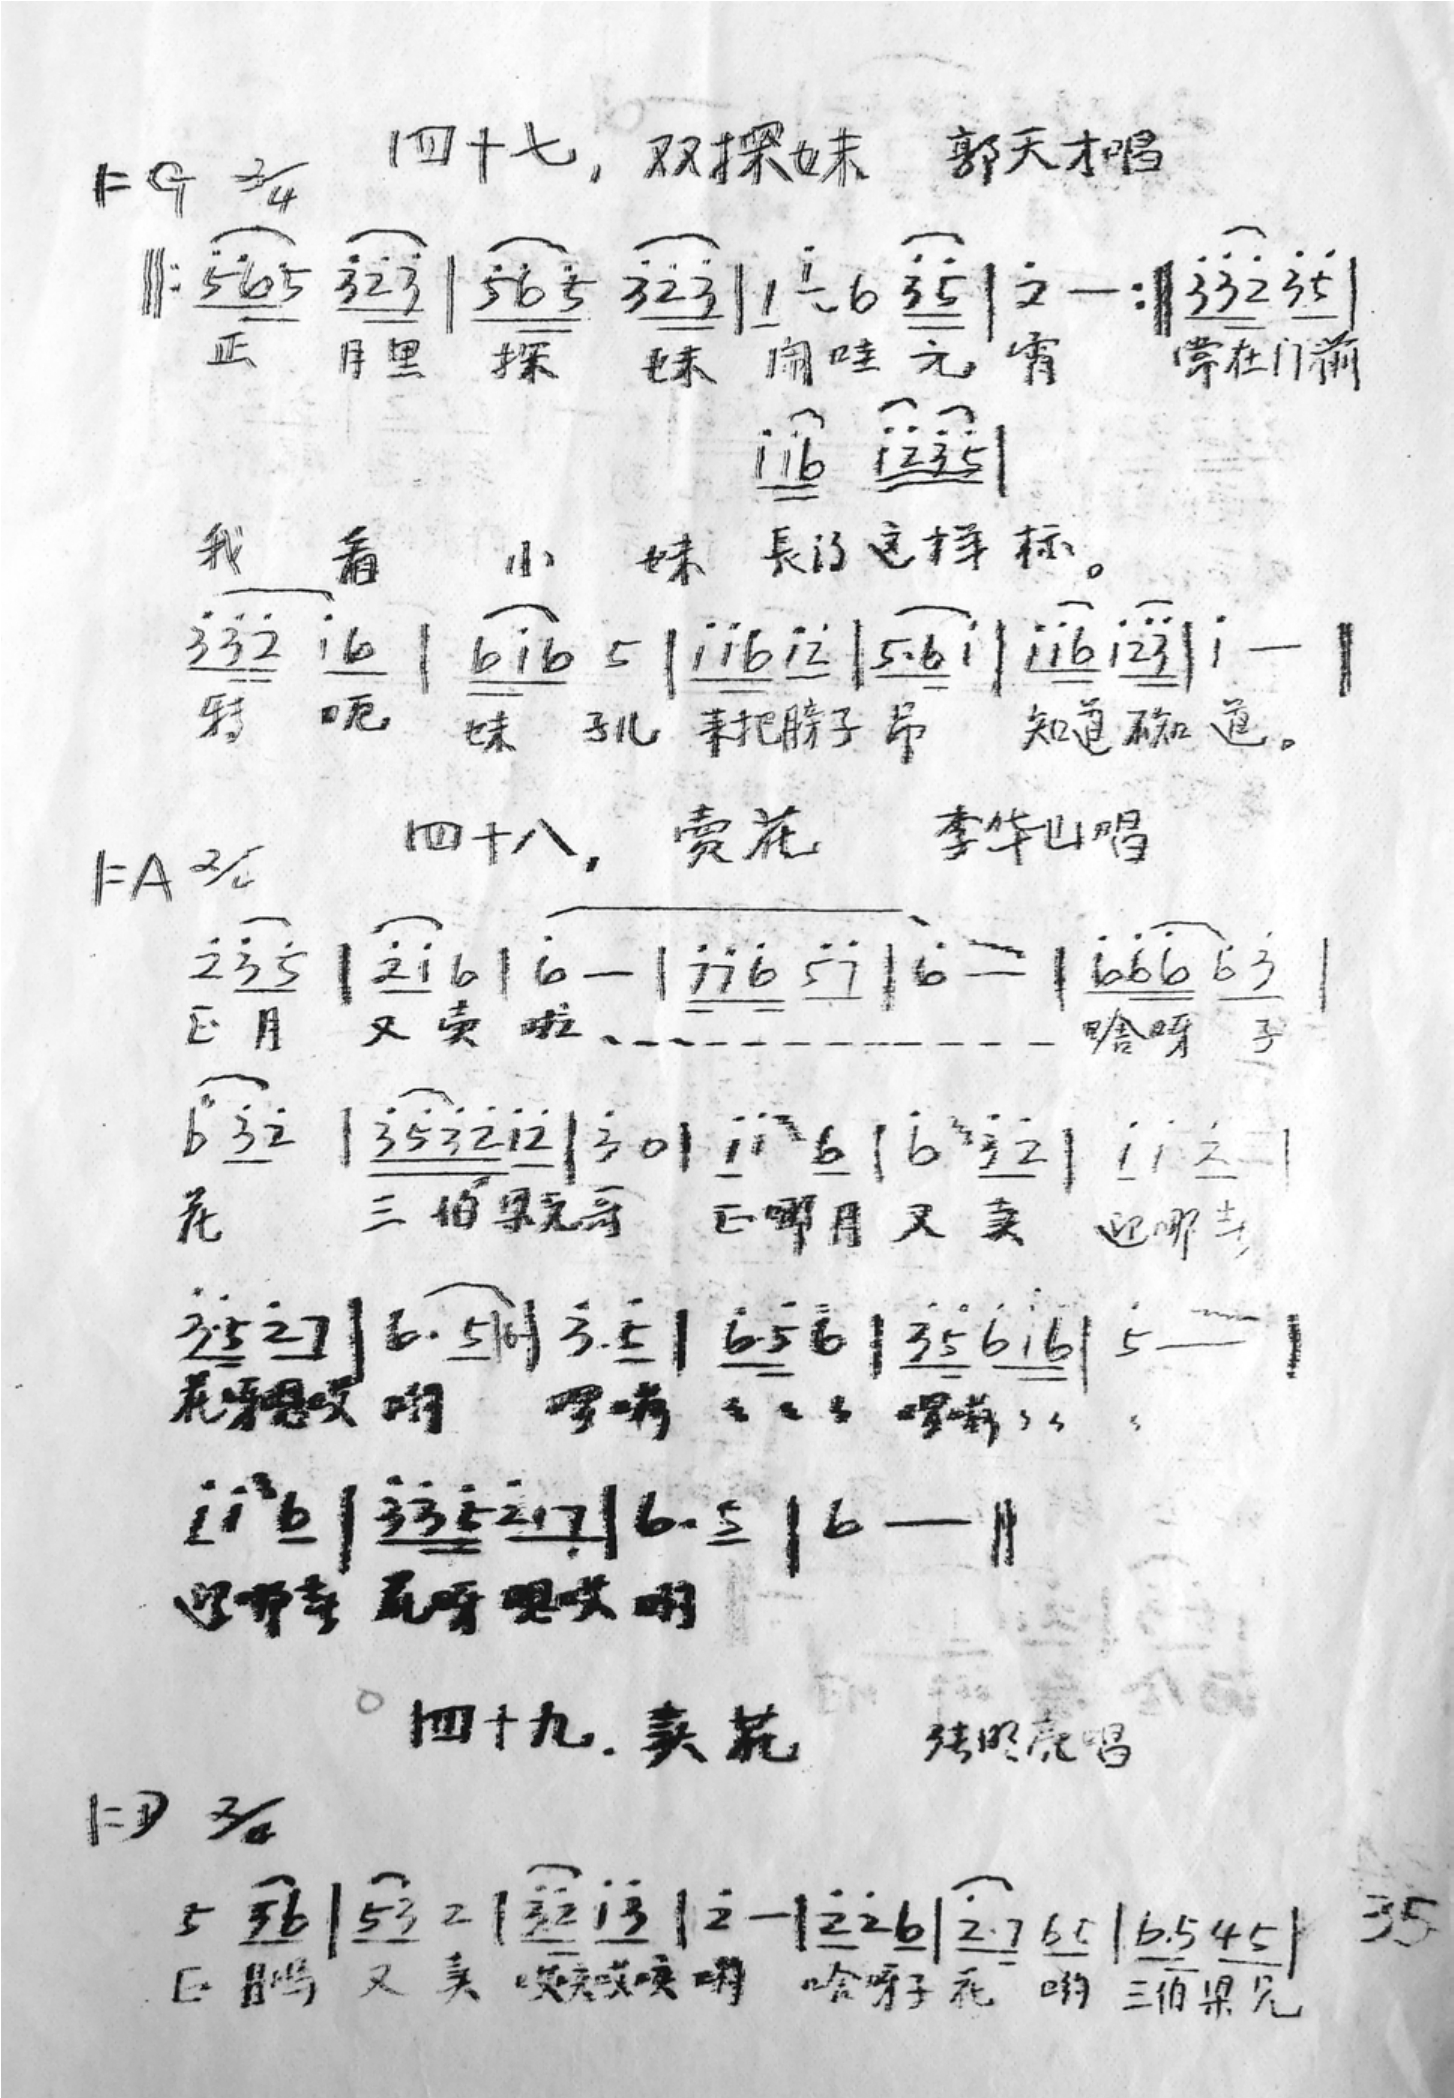 四十七，双探妹 郭天才唱
1=G 2/4
‖: 5̇6̇5̇ 3̇2̇3̇ | 5̇6̇5̇ 3̇2̇3̇ | 1̇ 1̇ 6 3̇5̇ | 2̇ — :‖ 3̇3̇2̇ 3̇5̇ |
正 月里 探 妹 闹哇 元 宵 常在门前
1̇1̇6 1̇2̇3̇5̇ |
我 看 小 妹 長得这样 标。
3̇3̇2̇ 1̇6 | 6 1̇6 5 | 1̇1̇6 1̇2̇ | 5·6 1̇ | 1̇1̇6 1̇2̇3̇ | 1̇ — ‖
呃 妹 子儿 来把膀子 吊 知道不知 道。
四十八，卖花 李华山唱
1=A 2/4
2̇ 3̇5̇ | 2̇1̇ 6 | 6̇ — | 1̇1̇6̇ 5̇1̇ | 6̇ — | 6̇6̇6̇ 6̇3̇ |
正 月 又 卖 啦 啥呀 子
6̇ 3̇2̇ | 3̇5̇3̇2̇ 1̇2̇ | 3̇ 0 | 1̇ 1̇ 6 | 6̇ 3̇2̇ | 1̇ 1̇ 2̇ |
花 三 伯梁兄哥 正哪月 又 卖 迎哪春
3̇·5̇ 2̇7 | 6· 5 | 6 | 3̇·5̇ | 6̇·5̇ 6̇ | 3̇5̇ 6̇1̇6̇ | 5̇ — |
花呀嗯哎 哟 啰嗬 〃 〃 〃 啰嗬 〃 〃 〃
1̇ 1̇ 6 | 3̇3̇5̇ 2̇·7 | 6· 5 | 6 — ‖
迎哪春 花呀 嗯哎 哟
四十九. 卖花 张明亮唱
1=D 2/4
5 3̇6 | 5̇3̇ 2 | 3̇2̇ 1̇3̇ | 2̇ — | 2̇ 2̇ 6 | 2̇·7 65 | 6·5 45 | 35
正 月吗 又 卖 哟 啥呀子 花 哟 三伯梁兄